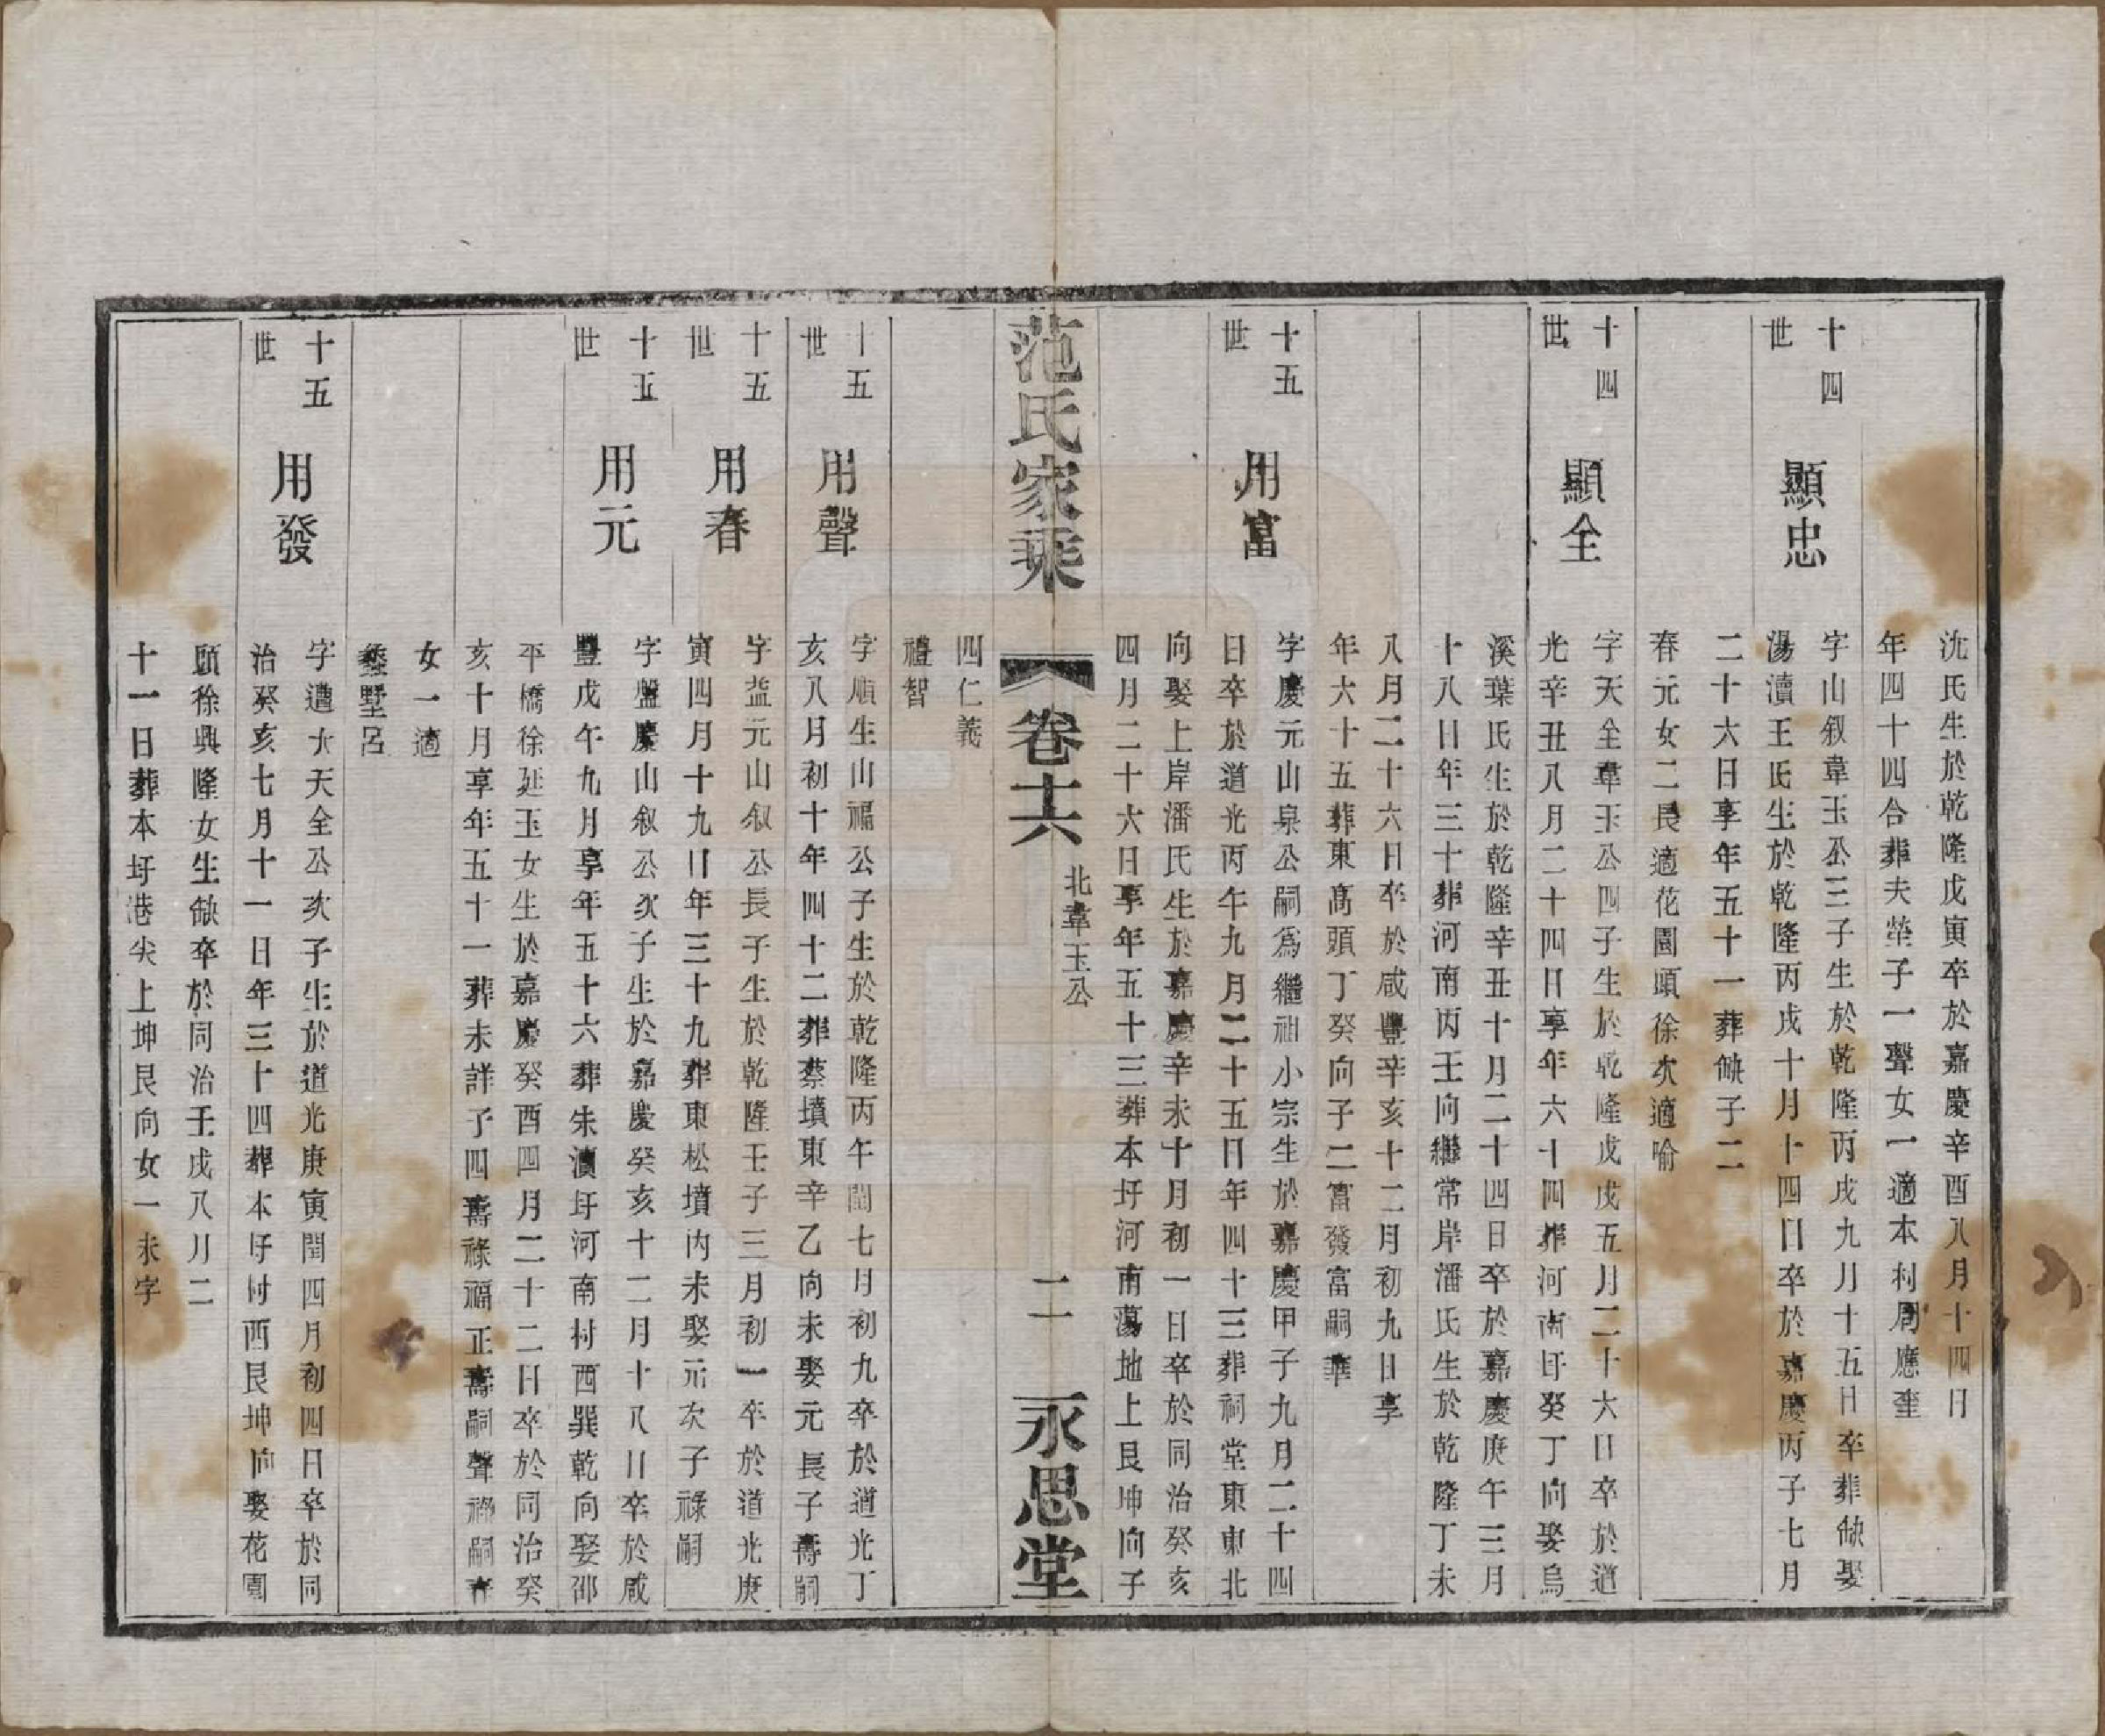 沈氏生於乾隆戊寅卒於嘉慶辛酉八月十四日
年四十四合葬夫塋子一聲女一適本村周應奎
十四世 顯忠
字山叙韋玉公三子生於乾隆丙戌九月十五日卒葬缺娶
湯瀆王氏生於乾隆丙戌十月十四日卒於嘉慶丙子七月
二十六日享年五十一葬缺子二
春元女二長適花園頭徐次適喻
十四世 顯全
字天全韋玉公四子生於乾隆戊戌五月二十六日卒於道
光辛丑八月二十四日享年六十四葬河南圩癸丁向娶烏
溪葉氏生於乾隆辛丑十月二十四日卒於嘉慶庚午三月
十八日年三十葬河南丙壬向繼常岸潘氏生於乾隆丁未
八月二十六日卒於咸豐辛亥十二月初九日享
年六十五葬東高頭丁癸向子二富發富嗣華
十五世 用富
字慶元山泉公嗣爲繼祖小宗生於嘉慶甲子九月二十四
日卒於道光丙午九月二十五日年四十三葬祠堂東東北
向娶上岸潘氏生於嘉慶辛未十月初一日卒於同治癸亥
四月二十六日享年五十三葬本圩河南蕩地上艮坤向子
范氏家乘 卷十六 北韋玉公 二 永思堂
四仁義
禮智
十五世 用聲
字順生山福公子生於乾隆丙午閏七月初九卒於道光丁
亥八月初十年四十二葬蔡墳東辛乙向未娶元長子壽嗣
十五世 用春
字益元山叙公長子生於乾隆壬子三月初一卒於道光庚
寅四月十九日年三十九葬東松墳內未娶元次子祿嗣
十五世 用元
字盤慶山叙公次子生於嘉慶癸亥十二月十八日卒於咸
豐戊午九月享年五十六葬朱瀆圩河南村西巽乾向娶邵
平橋徐延玉女生於嘉慶癸酉四月二十二日卒於同治癸
亥十月享年五十一葬未詳子四壽祿福正壽嗣聲祿嗣春
女一適
蠡墅呂
十五世 用發
字遭大天全公次子生於道光庚寅閏四月初四日卒於同
治癸亥七月十一日年三十四葬本圩村西艮坤向娶花園
頭徐興隆女生缺卒於同治壬戌八月二
十一日葬本圩港尖上坤艮向女一未字